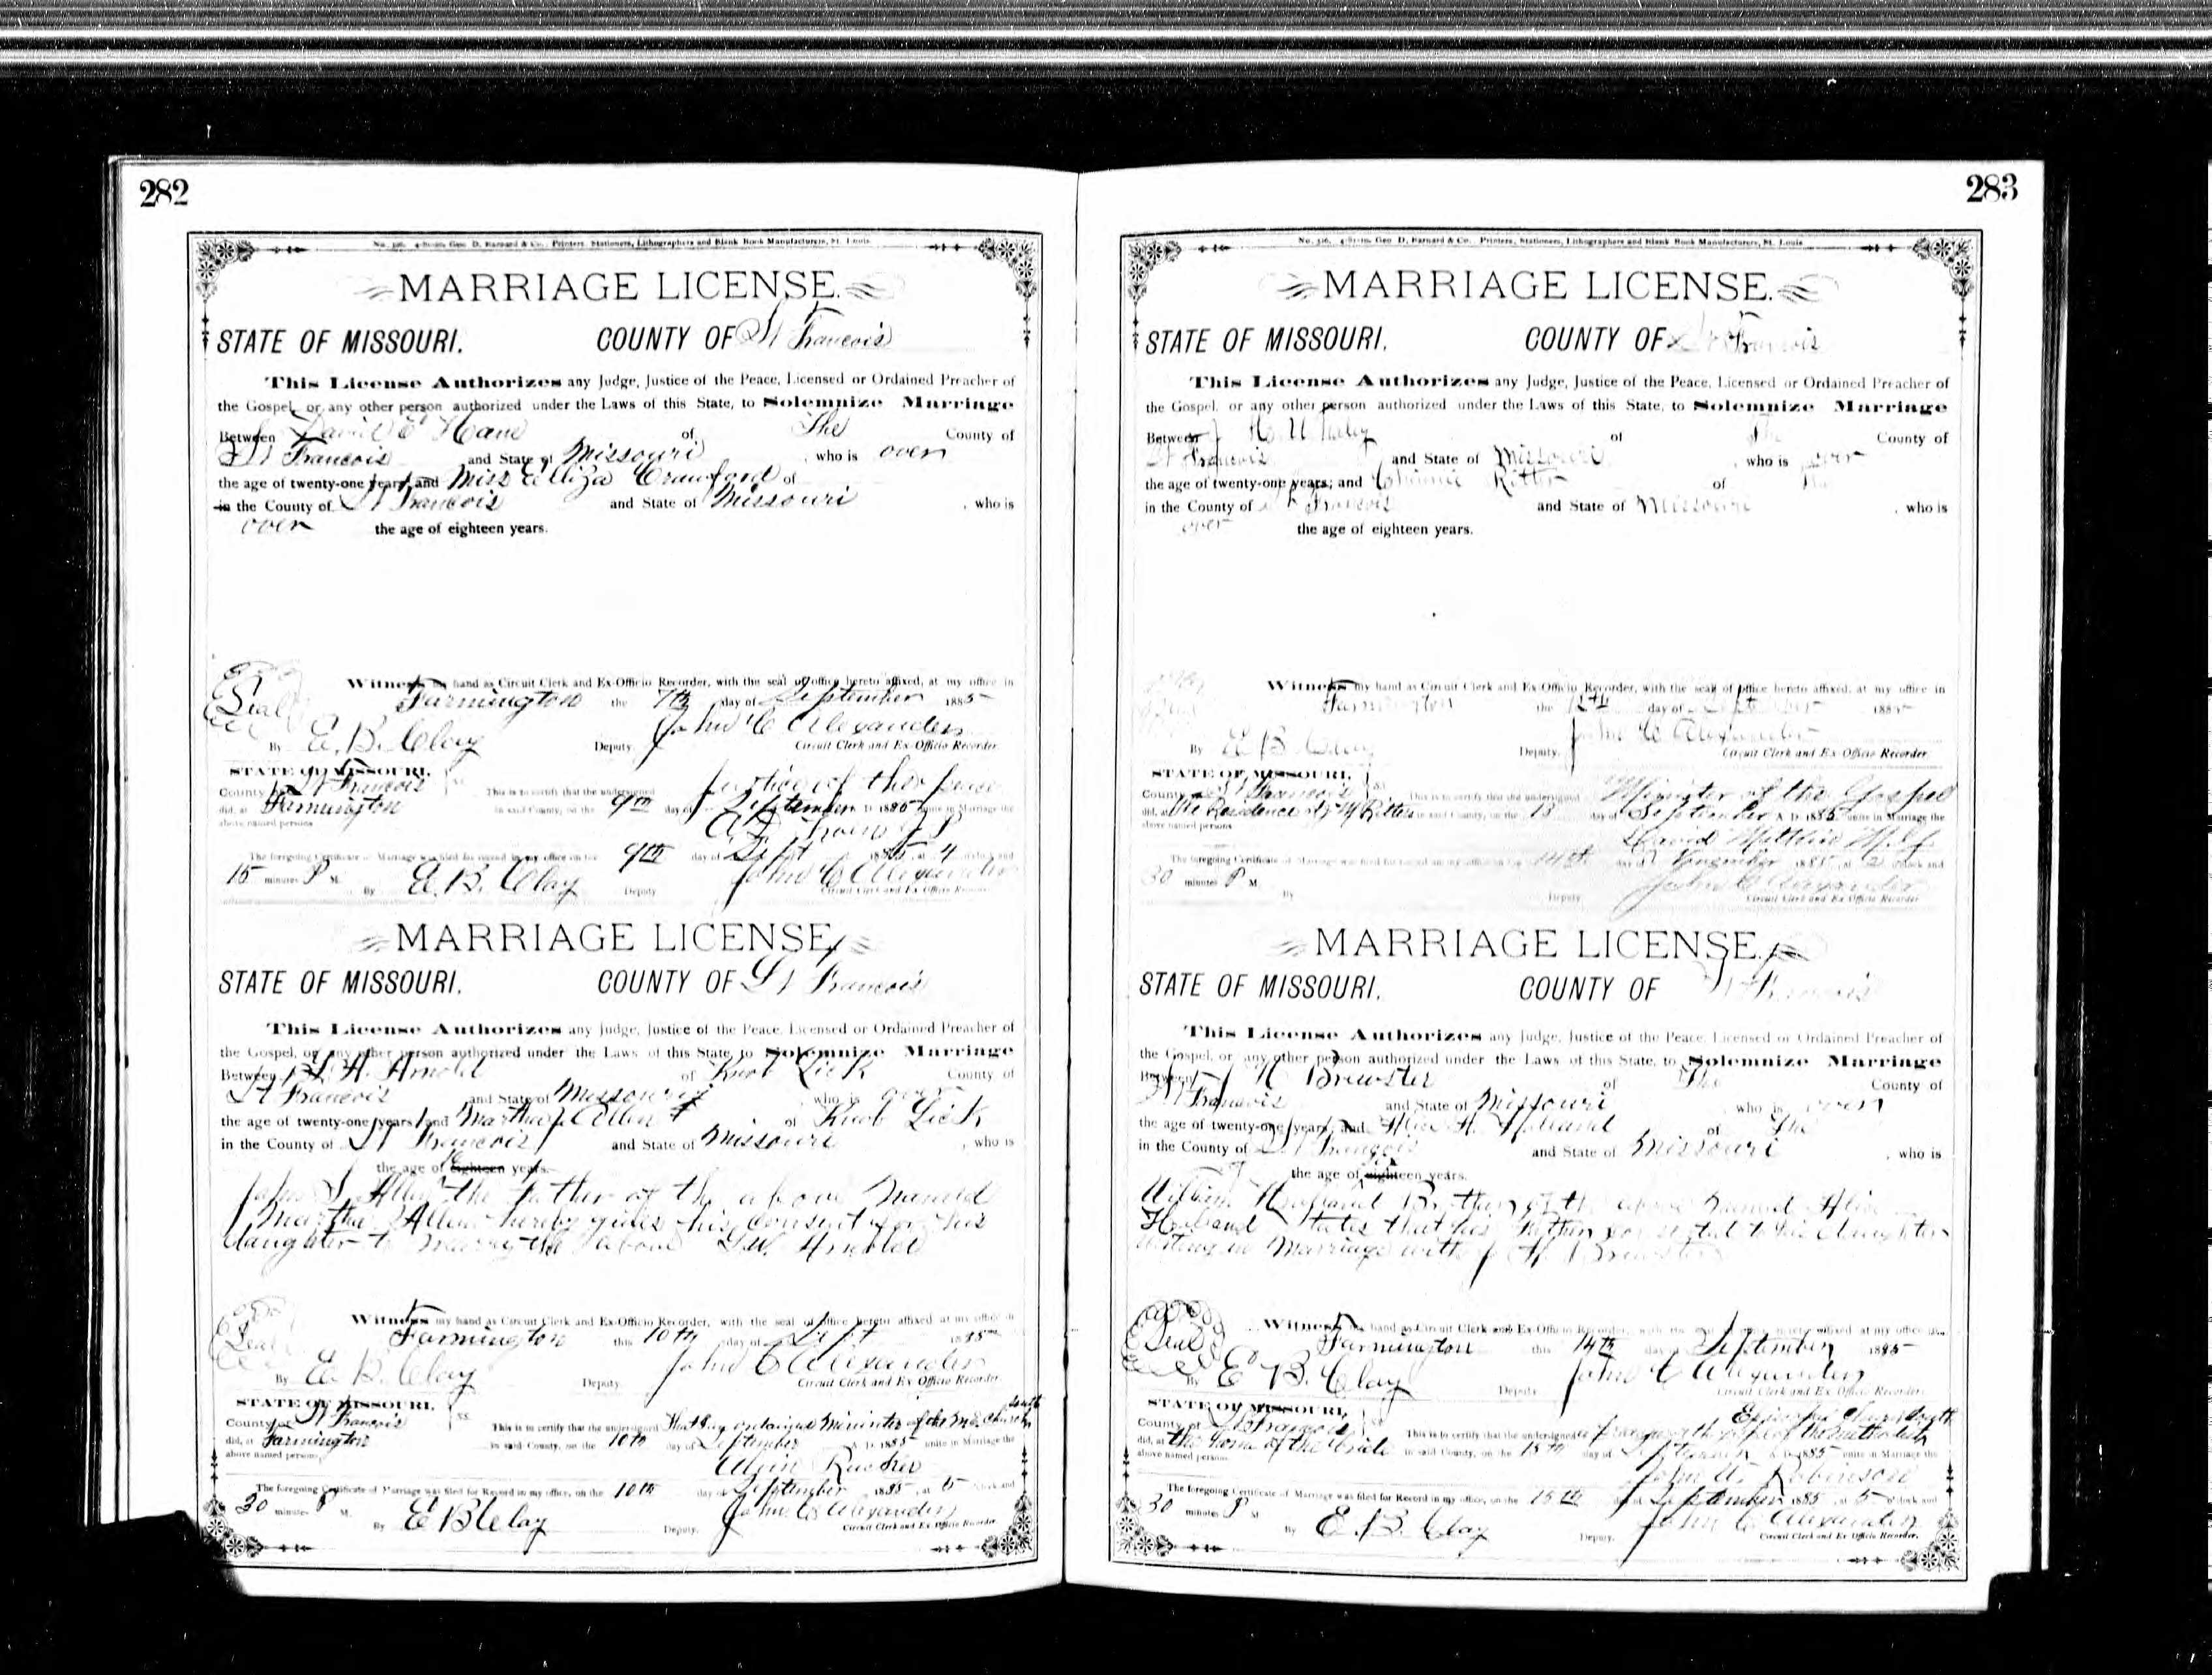 282
No. 316. Geo. D. Barnard & Co., Printers, Stationers, Lithographers and Blank Book Manufacturers, St. Louis
MARRIAGE LICENSE.
STATE OF MISSOURI. COUNTY OF St Francois
This License Authorizes any Judge, Justice of the Peace, Licensed or Ordained Preacher of
the Gospel, or any other person authorized under the Laws of this State, to Solemnize Marriage
Between David E of The County of
St Francois and State of Missouri, who is over
the age of twenty-one years, and Miss Eliza Crawford of
in the County of St Francois and State of Missouri, who is
over the age of eighteen years.
Witness my hand as Circuit Clerk and Ex-Officio Recorder, with the seal of office hereto affixed, at my office in
Seal Farmington the 7th day of September 1885
By E. B. Clay Deputy. John C Alexander
Circuit Clerk and Ex-Officio Recorder
STATE OF MISSOURI,
County of St Francois ss. This is to certify that the undersigned Justice of the peace
did, at Farmington in said County, on the 9th day of September A. D. 1885 unite in Marriage the
above named persons
The foregoing Certificate of Marriage was filed for record in my office on the 9th day of Sept 1885, at 4 o'clock and
15 minutes P M. By E. B. Clay Deputy John C Alexander
Circuit Clerk and Ex-Officio Recorder
MARRIAGE LICENSE.
STATE OF MISSOURI. COUNTY OF St Francois
This License Authorizes any Judge, Justice of the Peace, Licensed or Ordained Preacher of
the Gospel, or any other person authorized under the Laws of this State, to Solemnize Marriage
Between Arnold of Knob Lick County of
St Francois and State of Missouri, who is over
the age of twenty-one years, and Martha J Allen of Knob Lick
in the County of St Francois and State of Missouri, who is
the age of eighteen years.
John S Allen the father of the above named
Martha Allen hereby gives his consent for his
daughter to marry the above Arnold
Witness my hand as Circuit Clerk and Ex-Officio Recorder, with the seal of office hereto affixed at my office in
Seal Farmington this 10th day of Sept 1885
By E. B. Clay Deputy. John C Alexander
Circuit Clerk and Ex-Officio Recorder.
STATE OF MISSOURI,
County of St Francois ss. This is to certify that the undersigned ordained Minister of the M.E. Church South
did, at Farmington in said County, on the 10th day of September A. D. 1885 unite in Marriage the
above named persons.
The foregoing Certificate of Marriage was filed for Record in my office, on the 10th day of September, 1885, at 5 o'clock and
30 minutes P M. By E B Clay Deputy. John C Alexander
Circuit Clerk and Ex-Officio Recorder
283
No. 316. Geo. D. Barnard & Co. Printers, Stationers, Lithographers and Blank Book Manufacturers, St. Louis
MARRIAGE LICENSE.
STATE OF MISSOURI. COUNTY OF St Francois
This License Authorizes any Judge, Justice of the Peace, Licensed or Ordained Preacher of
the Gospel, or any other person authorized under the Laws of this State, to Solemnize Marriage
Between of The County of
St Francois and State of Missouri, who is over
the age of twenty-one years; and Ritter of The
in the County of St Francois and State of Missouri, who is
over the age of eighteen years.
Witness my hand as Circuit Clerk and Ex-Officio Recorder, with the seal of office hereto affixed, at my office in
Seal Farmington the 12th day of September 1885
By E B Clay Deputy. John C Alexander
Circuit Clerk and Ex-Officio Recorder.
STATE OF MISSOURI,
County of St Francois ss. This is to certify that the undersigned Minister of the Gospel
did, at the Residence of Ritter in said County, on the 13 day of September A. D. 1885 unite in Marriage the
above named persons
The foregoing Certificate of Marriage was filed for record in my office on the 14th day of 1885 at 2 o'clock and
30 minutes P M. By Deputy. John C Alexander
Circuit Clerk and Ex-Officio Recorder
MARRIAGE LICENSE.
STATE OF MISSOURI. COUNTY OF St Francois
This License Authorizes any Judge, Justice of the Peace, Licensed or Ordained Preacher of
the Gospel, or any other person authorized under the Laws of this State, to Solemnize Marriage
Between J H Brewster of The County of
St Francois and State of Missouri, who is over
the age of twenty-one years, and of The
in the County of St Francois and State of Missouri, who is
the age of eighteen years.
William Brother of the above named Alice
states that his Father consented to his daughter
uniting in Marriage with J H Brewster
Witness my hand as Circuit Clerk and Ex-Officio Recorder, at my office in
Seal Farmington this 14th day of September 1885
By E B. Clay Deputy John C Alexander
Circuit Clerk and Ex-Officio Recorder.
STATE OF MISSOURI, Episcopal Church South
County of St Francois ss. This is to certify that the undersigned a preacher of the Methodist
did, at the home of the bride in said County, on the 15th day of September A. D. 1885 unite in Marriage the
above named persons. John Robinson
The foregoing Certificate of Marriage was filed for Record in my office, on the 15th day of September 1885 at 5 o'clock and
30 minutes P M By E. B. Clay Deputy. John C Alexander
Circuit Clerk and Ex-Officio Recorder.